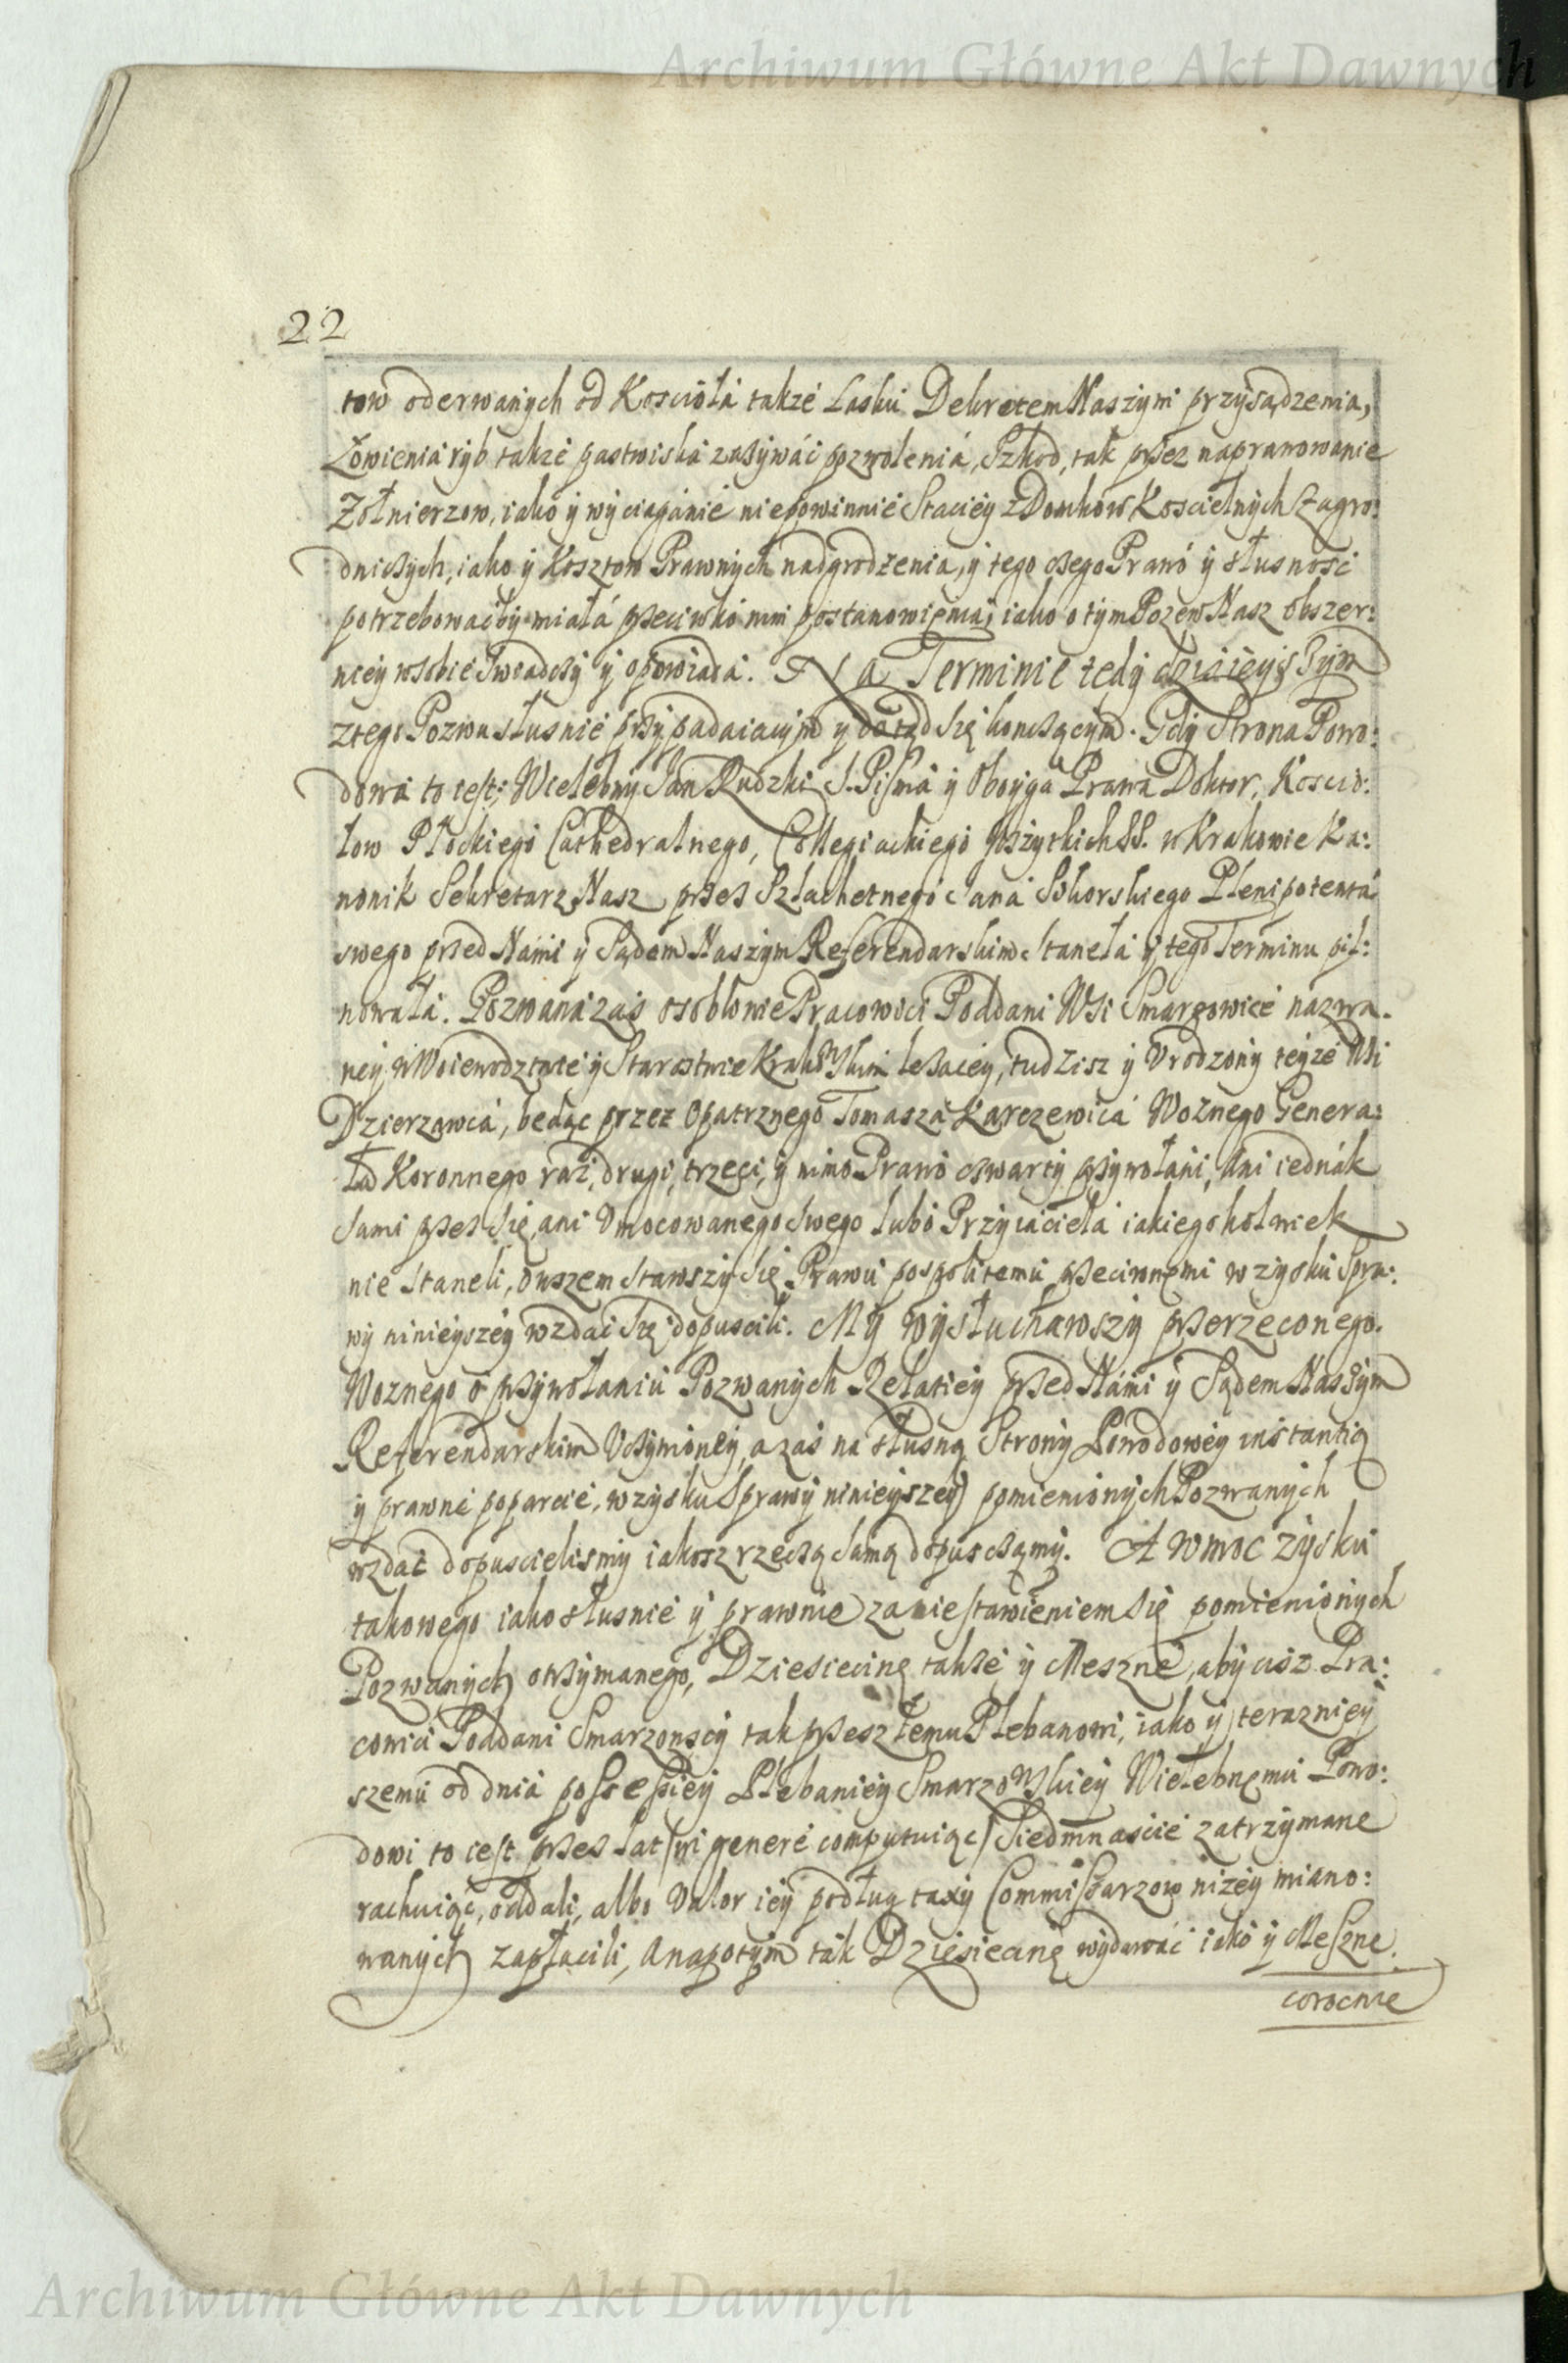 Archiwum Główne Akt Dawnych
22
tow oderwanych od Kosciołá także Lasku Dekretem Naszym przysądzenia,
Łowienia ryb także pastwiská zażywáć pozwolenia, Szkod, tak przez naprowowanie
Zołnierzow, iako y wyciąganié niepowinnié Staciey z Domkow Koscielnych Zagro:
dniczych, iako y Kosztow Prawnych nadgrodzenia, y tego czego Prawo y słusność
potrzebowacby miałá przeciwko nim postanowienia, iako o tym Pozew Nasz obszer:
niey w sobie swiadczy y opowiada. Na Terminie tedy dzisieyszym
z tego Pozwu słusnie przypadaiącym y dotąd się kończącym. Gdy Strona Powo:
dowa to iest; Wielebny Jan Rudzki S. Pisma y Oboyga Prawa Doktor, Koscio:
łow Płockiego Cathedralnego, Collegiackiego Wszytkich SS. w Krakowie Ka:
nonik Sekretarz Nasz przez Szlachetnego Jana Sikorskiego Plenipotentá
swego przed Nami y Sądem Naszym Referendarskim Staneła y tego Terminu pil:
nowała. Pozwani zaś osobliwie Pracowici Poddani Wsi Smarzowice nazwa:
ney, w Woiewodztwie y Starostwie Krakowskim leżacey, tudzisz y Vrodzony teyże Wsi
Dzierzawca, bedąc przez Opatrznego Tomasza Karczewica Woznego Genera:
ła Koronnego raz, drugi, trzeci, y mimo Prawo czwarty przywołani, Ani iednák
sami przez się, ani Vmocowanego swego lubo Przyiaciela iakiegokolwiek
nie staneli, owszem stawszy się Prawu pospolitemu przeciwnemi w zysku Spra:
wy ninieyszey wzdać się dopuscili. My wysłuchawszy przerzeconego
Woznego o przywołaniu Pozwanych Relatiey przed Námi y Sądem Naszym
Referendarskim Vczynioney, a zaś na słusną Strony Powodowey instantią
y prawne poparcié, w zysku Sprawy ninieyszey pomienionych Pozwanych
wzdać dopuscielismy iakosz rzeczą samą dopusczamy. A w moc zysku
takowego iako słusnié y prawnie za niestawieniem się pomienionych
Pozwanych otrzymanego, Dziesiecinę także y Meszne, aby cisz Pra:
cowici Poddani Smarzowscy tak przeszłemu Plebanowi, iako y terazniey
szemu od dnia possessiey Plebaniey Smarzowskiey Wielebnemu Powo:
dowi to iest przez lat (in genere computuiąc) Siedmnascie zatrzymane
rachuiąc, oddali, albo Valor iey podług taxy Commissarzow niżey miano:
wanych zapłacili, á na potym tak Dziesiecinę wydawáć iako y Meszne
corocnie
Archiwum Główne Akt Dawnych